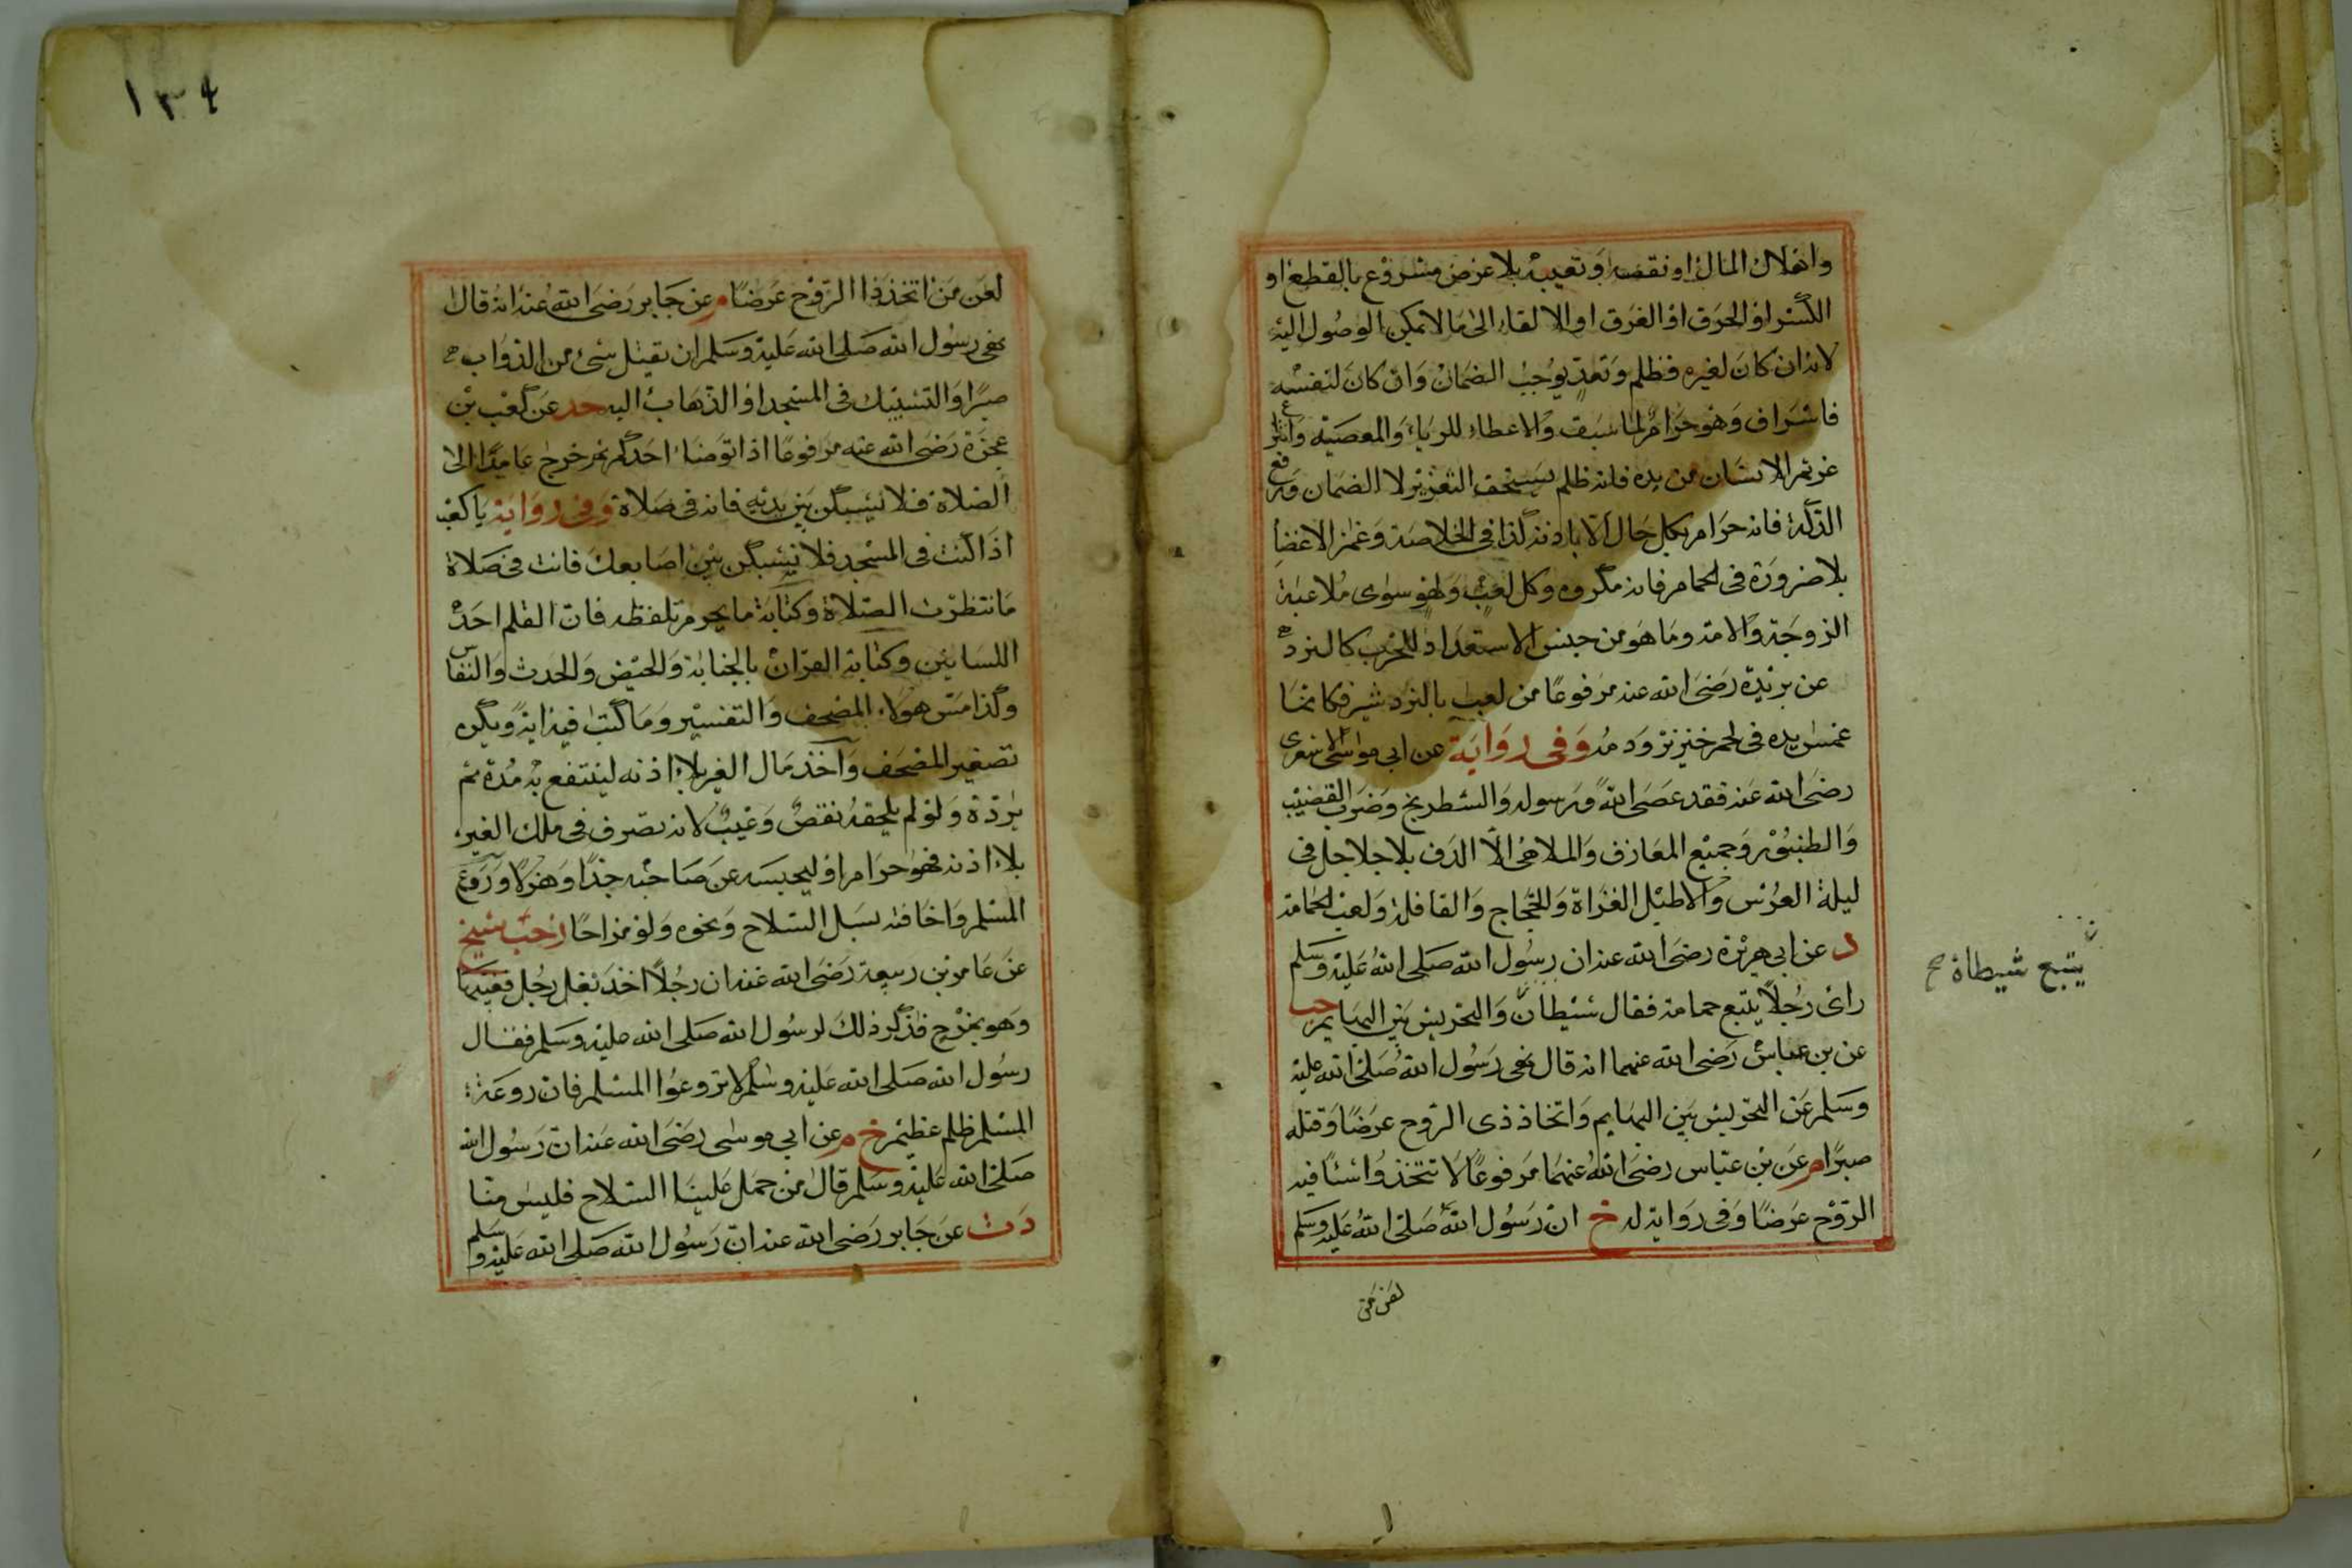 واهلاك المال او نقصه او تعيبه بلا غرض مشروع بالقطع او
الكسر او الحرق او الغرق او الالقاء الى ما لا يمكن الوصول اليه
لانه ان كان لغيره فظلم وتعدٍ يوجب الضمان وان كان لنفسه
فاسراف وهو حرام لما سبق والاعطاء للرياء والمعصية وانتزاع
غريم الانسان من يده فانه ظلم يستحق التعزير لا الضمان ورفع
الذلة فانه حرام بكل حال الا باذنه كذا في الخلاصة وغمز الاعضا
بلا ضرورة في الحمام فانه مكروه وكل لعب ولهو سوى ملاعبة
الزوجة والامة وما هو من جنس الاستعداد للحرب كالنرد م
عن بريدة رضى الله عنه مرفوعًا من لعب بالنرد شير فكانما
غمس يده في لحم خنزير ودمه وفى رواية عن ابي موسى الاشعرى
رضى الله عنه فقد عصى الله ورسوله والشطرنج وضرب القضيب
والطنبور وجميع المعازف والملاهى الا الدف بلا جلاجل في
ليلة العرس والا طبل الغزاة والحجاج والقافلة ولعب الحمامة
د عن ابي هريرة رضى الله عنه ان رسول الله صلى الله عليه وسلم
راى رجلاً يتبع حمامة فقال شيطان والتحريش بين البهايم حب
عن بن عباس رضى الله عنهما انه قال نهى رسول الله صلى الله عليه
وسلم عن التحريش بين البهايم واتخاذ ذى الروح عرضًا وقتله
صبرًا م عن بن عباس رضى الله عنهما مرفوعًا لا تتخذوا شئًا فيه
الروح عرضًا وفى رواية له خ ان رسول الله صلى الله عليه وسلم
لعن من
يتبع شيطاة صح
١٣٤
لعن من اتخذ ذا الروح عرضًا م عن جابر رضى الله عنه انه قال
نهى رسول الله صلى الله عليه وسلم ان يقتل شئ من الدواب
صبرًا والتشبيك في المسجد او الذهاب اليه حد عن كعب بن
عجزة رضى الله عنه مرفوعًا اذا توضا احدكم ثم خرج عامدًا الى
الصلاة فلا يشبكن بين يديه فانه في صلاة وفى رواية يا كعب
اذا كنت في المسجد فلا تشبكن بين اصابعك فانت في صلاة
ما انتظرت الصلاة وكتابة ما يحرم تلفظه فان القلم احد
اللسانين وكتابة القران بالجنابة والحيض والحدث والنفاس
وكذا مس هولاء المصحف والتفسير وما كتب فيه اية ويكره
تصغير المصحف واخذ مال الغير بلا اذنه لينتفع به مدة ثم
يردة ولو لم يلحقه نقص وعيب لانه تصرف في ملك الغير
بلا اذنه فهو حرام او ليحبسه عن صاحبه جدًا وهزلاً وروع
المسلم واخافته بسبل السلاح ونحوه ولو مزاحًا زحب شيخ
عن عامر بن ربيعة رضى الله عنه ان رجلاً اخذ نعل رجل فغيبها
وهو يمزح فذكر ذلك لرسول الله صلى الله عليه وسلم فقال
رسول الله صلى الله عليه وسلم لا تروعوا المسلم فان روعة
المسلم ظلم عظيم خ م عن ابي موسى رضى الله عنه ان رسول الله
صلى الله عليه وسلم قال من حمل علينا السلاح فليس منا
دت عن جابر رضى الله عنه ان رسول الله صلى الله عليه وسلم